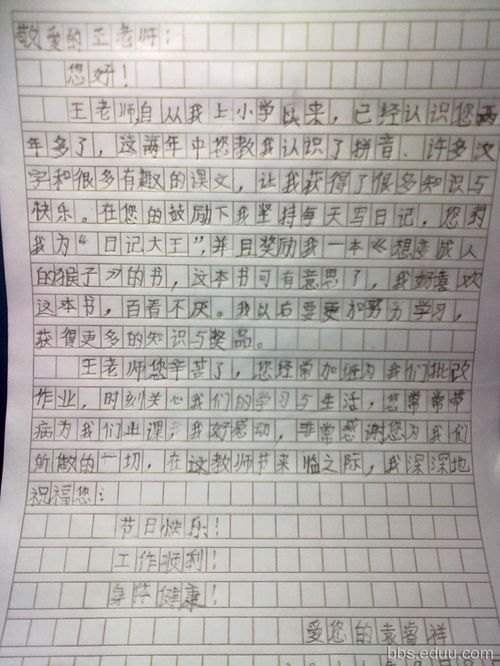 敬爱的王老师：
您好！
王老师,自从我上小学以来，已经认识您两
年多了，这两年中您教我认识了拼音、许多汉
字和很多有趣的课文，让我获得了很多知识与
快乐。在您的鼓励下我坚持每天写日记，您封
我为“日记大王”，并且奖励我一本《想变成人
的猴子》的书，这本书可有意思了，我好喜欢
这本书，百看不厌。我以后要更加努力学习，
获得更多的知识与奖品。
王老师您辛苦了，您经常加班为我们批改
作业，时刻关心我们的学习与生活，您常常带
病为我们上课，我好感动，非常感谢您为我们
所做的一切，在这教师节来临之际，我深深地
祝福您：
节日快乐！
工作顺利！
身体健康！
爱您的袁睿祥
bbs.eduu.com